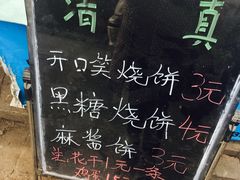 清真
开口笑烧饼3元
黑糖烧饼4元
麻酱饼3元
豆花干1元一条